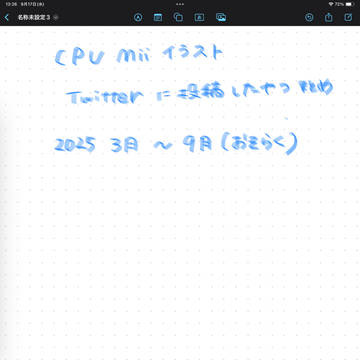 13:26 9月17日(水)
72%
名称未設定 3
CPU Mii イラスト
Twitter に投稿したやつ まとめ
2025 3月 〜 9月 (おそらく)